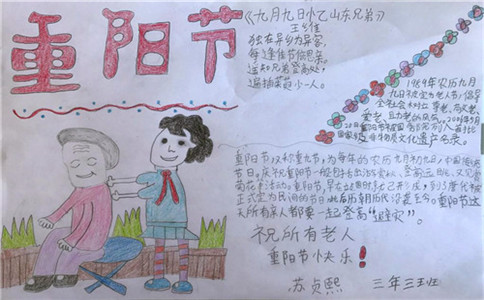 重阳节
《九月九日忆山东兄弟》
王维
独在异乡为异客,
每逢佳节倍思亲。
遥知兄弟登高处,
遍插茱萸少一人。
1989年农历九月
九日被定为老人节,倡导
全社会树立尊老、敬老、
爱老、助老的风气。2006年5月
20日重阳节被国务院列入首批
国家级非物质文化遗产名录。
重阳节又称重九节,为每年的农历九月初九日,中国传统
节日。庆祝重阳节一般包括出游赏秋、登高远眺、观赏
菊花等活动。重阳节,早在战国时期就已形成,到了唐代被
正式定为民间的节日,此后历朝历代沿袭至今。重阳节这
天所有亲人都要一起登高“避灾”。
祝所有老人
重阳节快乐!
苏贞熙 三年三班